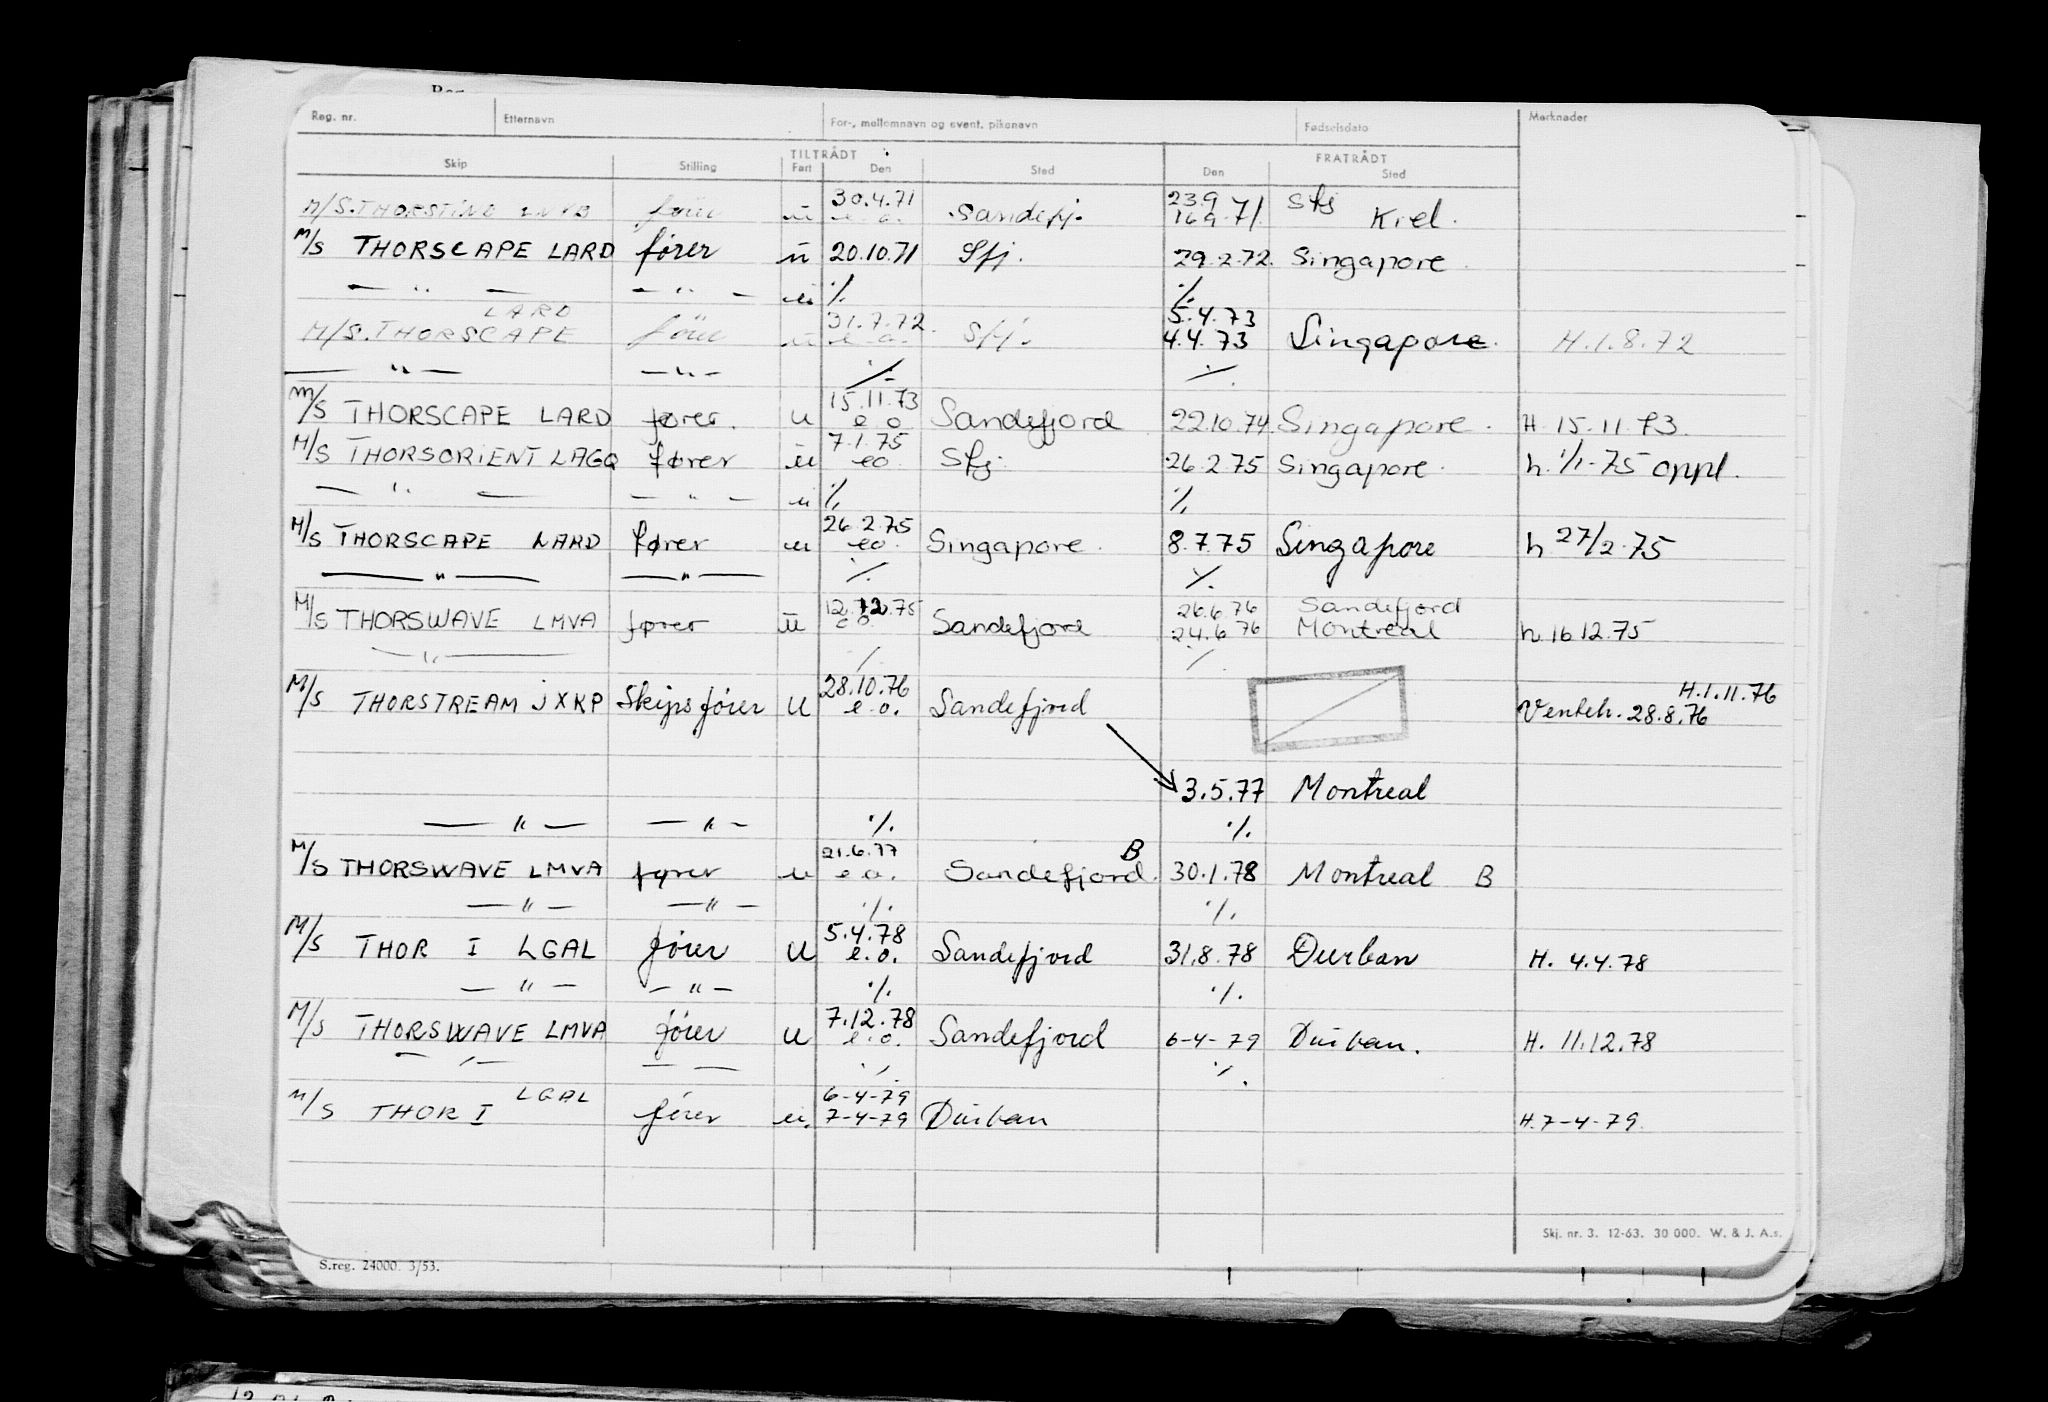 Reg. nr. Etternavn For-, mellomnavn og event. pikenavn Fødselsdato Merknader
TILTRÅDT FRATRÅDT
Skip Stilling Fart Den Sted Den Sted
30.4.71 23.9 Sfj
M/S. THORSTIND LNVB fører u e.o. Sandefj. 16.9.71. Kiel.
M/S THORSCAPE LARD fører u 20.10.71 Sfj. 29.2.72. Singapore
— " — — " — u % %
LARD 31.7.72. 5.4.73
M/S. THORSCAPE fører u e.o. Sfj. 4.4.73 Singapore. H.1.8.72
— " — — " — % %
15.11.73
M/S THORSCAPE LARD fører. u e o Sandefjord 22.10.74. Singapore. H. 15.11.73.
7.1.75
M/S THORSORIENT LAGQ fører u eo Sfj. 26.2.75 Singapore. h. 1/1-75 oppl.
— " — — " — u % %
26.2.75
M/S THORSCAPE LARD fører u eo Singapore. 8.7.75 Singapore h 27/2.75
— " — — " — % %
12.12.75 26.6.76 Sandefjord
M/S THORSWAVE LMVA fører u e o Sandefjord 24.6.76 Montreal h.16.12.75
— " — % %
28.10.76 H.1.11.76
M/S THORSTREAM JXKP Skipsfører u e.o. Sandefjord Venteh. 28.8.76
3.5.77 Montreal
— " — — " — % %
21.6.77 B
M/S THORSWAVE LMVA fører u e.o. Sandefjord. 30.1.78 Montreal B
— " — — " — % %
5.4.78
M/S THOR I LGAL fører U e.o. Sandefjord 31.8.78 Durban H. 4.4.78
— " — — " — % %
7.12.78
M/S THORSWAVE LMVA fører u e.o. Sandefjord 6-4-79 Durban. H. 11.12.78
— " — — — % %
LGAL 6-4-79
M/S THOR I fører u. 7-4-79 Durban H.7-4-79.
Skj. nr. 3. 12-63. 30 000. W. & J. A.s.
S.reg. 24000. 3/53.